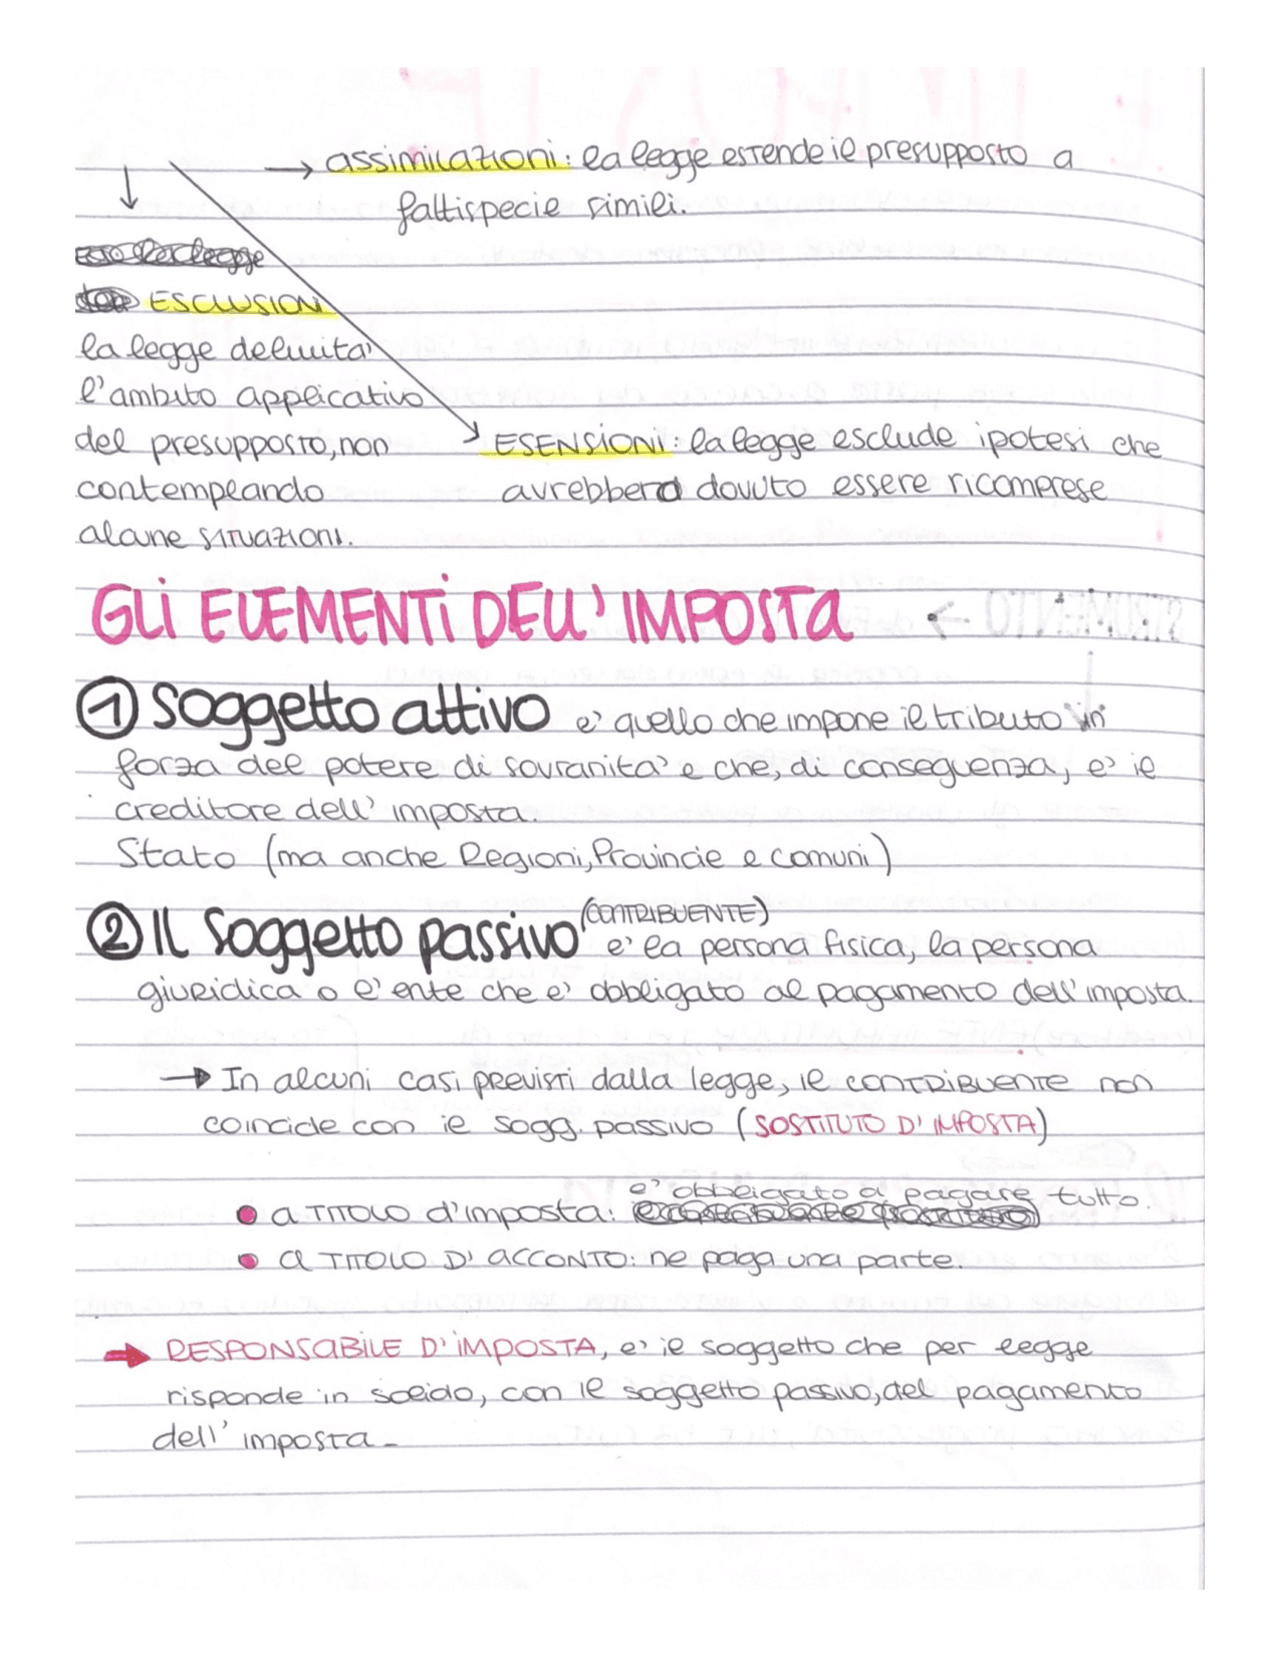 → assimilazioni: la legge estende il presupposto a
fattispecie simili.
ESCLUSIONI
la legge delimita
l'ambito applicativo
del presupposto, non
contemplando
alcune situazioni.
ESENSIONI: la legge esclude ipotesi che
avrebbero dovuto essere ricomprese
GLI ELEMENTI DELL'IMPOSTA
① Soggetto attivo e' quello che impone il tributo in
forza del potere di sovranita' e che, di conseguenza, e' il
creditore dell'imposta.
Stato (ma anche Regioni, Provincie e comuni)
② IL Soggetto passivo (CONTRIBUENTE) e' la persona fisica, la persona
giuridica o l'ente che e' obbligato al pagamento dell'imposta.
→ In alcuni casi previsti dalla legge, il CONTRIBUENTE non
coincide con il sogg. passivo (SOSTITUTO D'IMPOSTA)
• a TITOLO d'imposta: e' obbligato a pagare tutto.
• a TITOLO D'ACCONTO: ne paga una parte.
→ RESPONSABILE D'IMPOSTA, e' il soggetto che per legge
risponde in solido, con il soggetto passivo, del pagamento
dell'imposta.